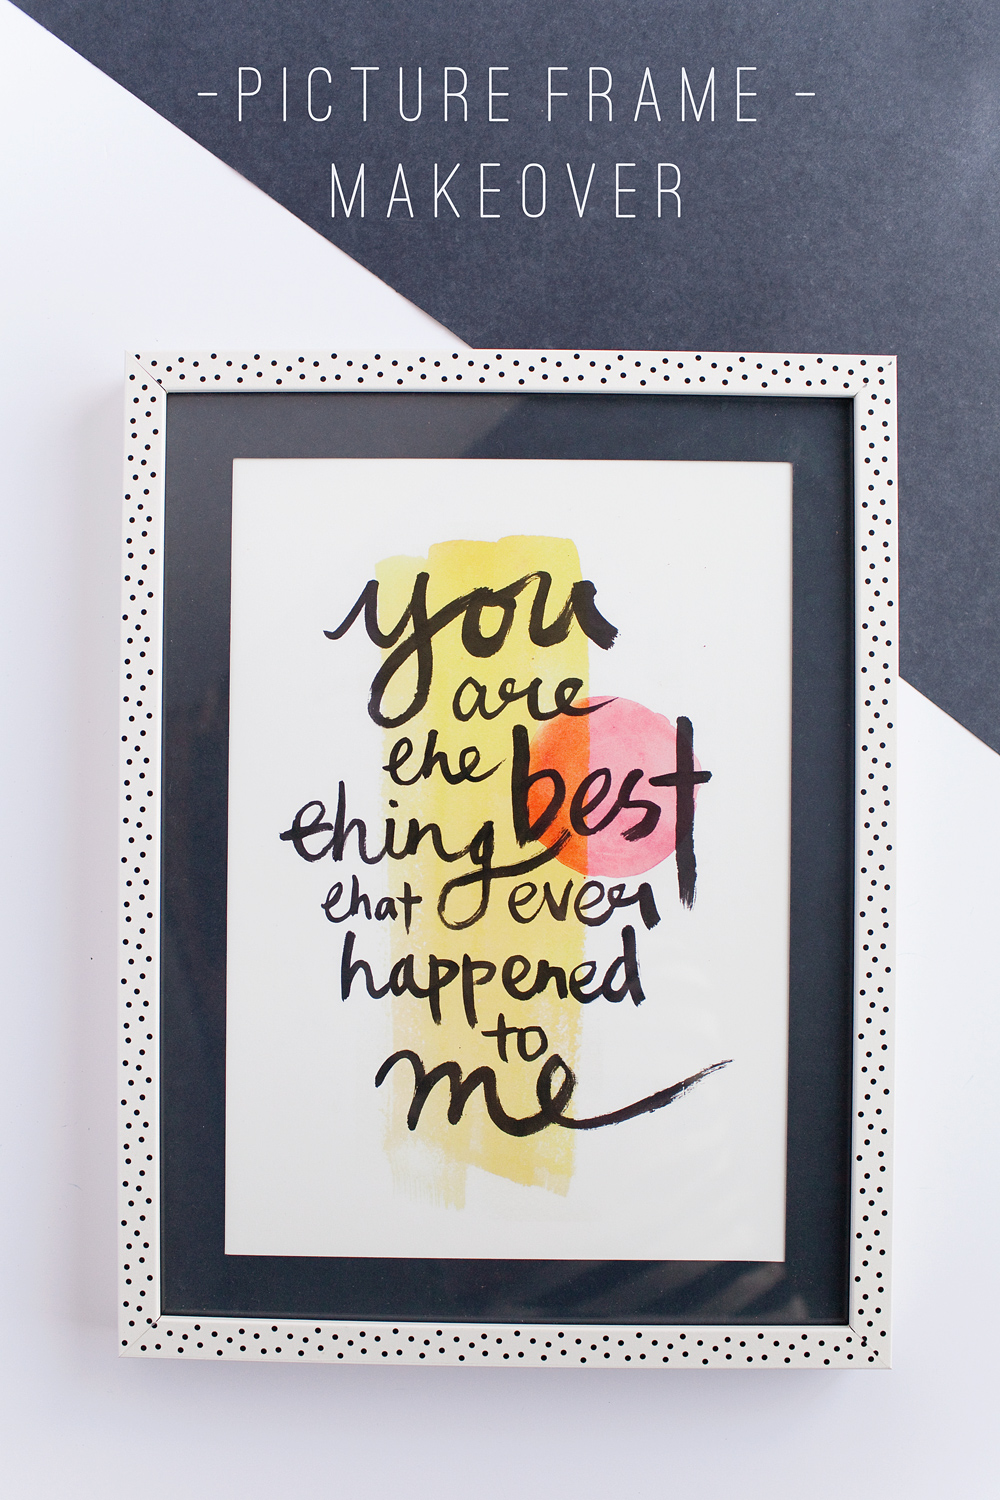 -PICTURE FRAME -
MAKEOVER
you
are
the best
thing
that ever
happened
to
me